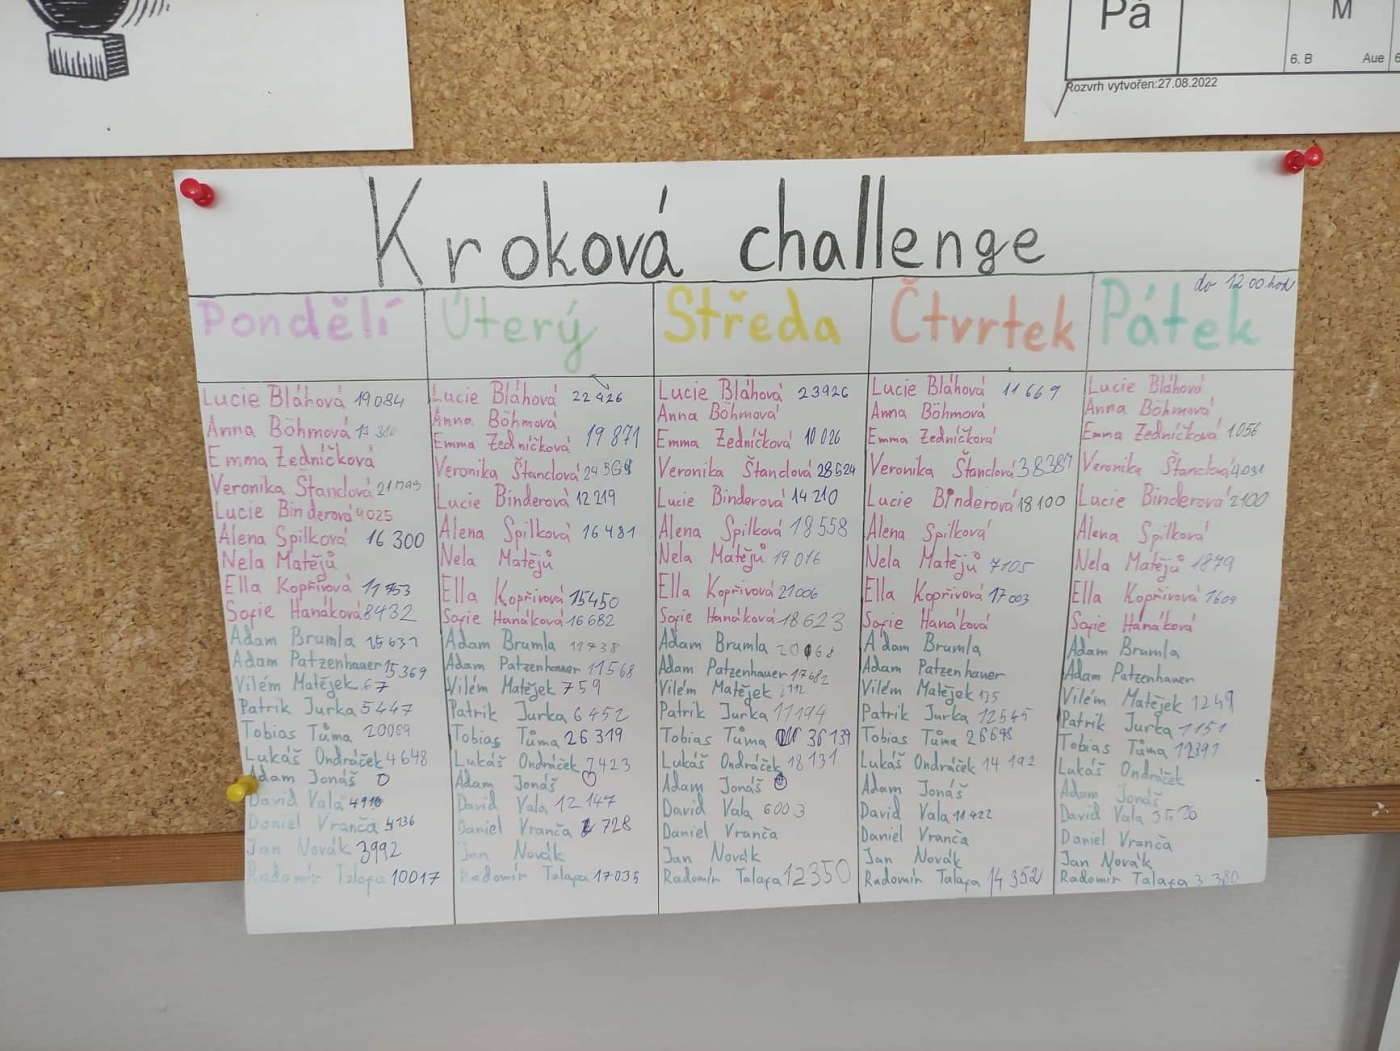 Pá
M
6. B Aue 6
Rozvrh vytvořen:27.08.2022
Kroková challenge
do 12 00 hod
Pondělí
Lucie Bláhová 19084
Anna Böhmová
Emma Zedníčková
Veronika Štanclová
Lucie Binderová 9025
Alena Spilková 16 300
Nela Matějů
Ella Kopřivová
Sofie Hanáková 8432
Adam Brumla 15631
Adam Patzenhauer 15369
Vilém Matějek 67
Patrik Jurka 5447
Tobias Tůma 20069
Lukáš Ondráček 4648
Adam Jonáš 0
David Vala
Daniel Vranča
Jan Novák 3992
Radomír Talafa 10017
Úterý
Lucie Bláhová 22426
Anna Böhmová
Emma Zedníčková 19 871
Veronika Štanclová
Lucie Binderová 12 219
Alena Spilková 16 481
Nela Matějů
Ella Kopřivová 15450
Sofie Hanáková 16682
Adam Brumla
Adam Patzenhauer 11568
Vilém Matějek 759
Patrik Jurka 6452
Tobias Tůma 26 319
Lukáš Ondráček 7423
Adam Jonáš 0
David Vala 12 147
Daniel Vranča 728
Jan Novák
Radomír Talafa 17035
Středa
Lucie Bláhová 23926
Anna Böhmová
Emma Zedníčková 10 026
Veronika Štanclová 28524
Lucie Binderová 14 210
Alena Spilková 18 558
Nela Matějů 19 016
Ella Kopřivová 21006
Sofie Hanáková 18623
Adam Brumla
Adam Patzenhauer 17682
Vilém Matějek
Patrik Jurka 11194
Tobias Tůma 36 139
Lukáš Ondráček 18 131
Adam Jonáš 0
David Vala 6003
Daniel Vranča
Jan Novák
Radomír Talafa 12350
Čtvrtek
Lucie Bláhová 11 669
Anna Böhmová
Emma Zedníčková
Veronika Štanclová 38387
Lucie Binderová 18100
Alena Spilková
Nela Matějů 7105
Ella Kopřivová 17003
Sofie Hanáková
Adam Brumla
Adam Patzenhauer
Vilém Matějek
Patrik Jurka 12545
Tobias Tůma 26698
Lukáš Ondráček 14 192
Adam Jonáš
David Vala 11 422
Daniel Vranča
Jan Novák
Radomír Talafa 14 352
Pátek
Lucie Bláhová
Anna Böhmová
Emma Zedníčková 1056
Veronika Štanclová 4031
Lucie Binderová 2100
Alena Spilková
Nela Matějů 1879
Ella Kopřivová 1609
Sofie Hanáková
Adam Brumla
Adam Patzenhauer
Vilém Matějek 1249
Patrik Jurka 1151
Tobias Tůma
Lukáš Ondráček
Adam Jonáš
David Vala
Daniel Vranča
Jan Novák
Radomír Talafa 3 380